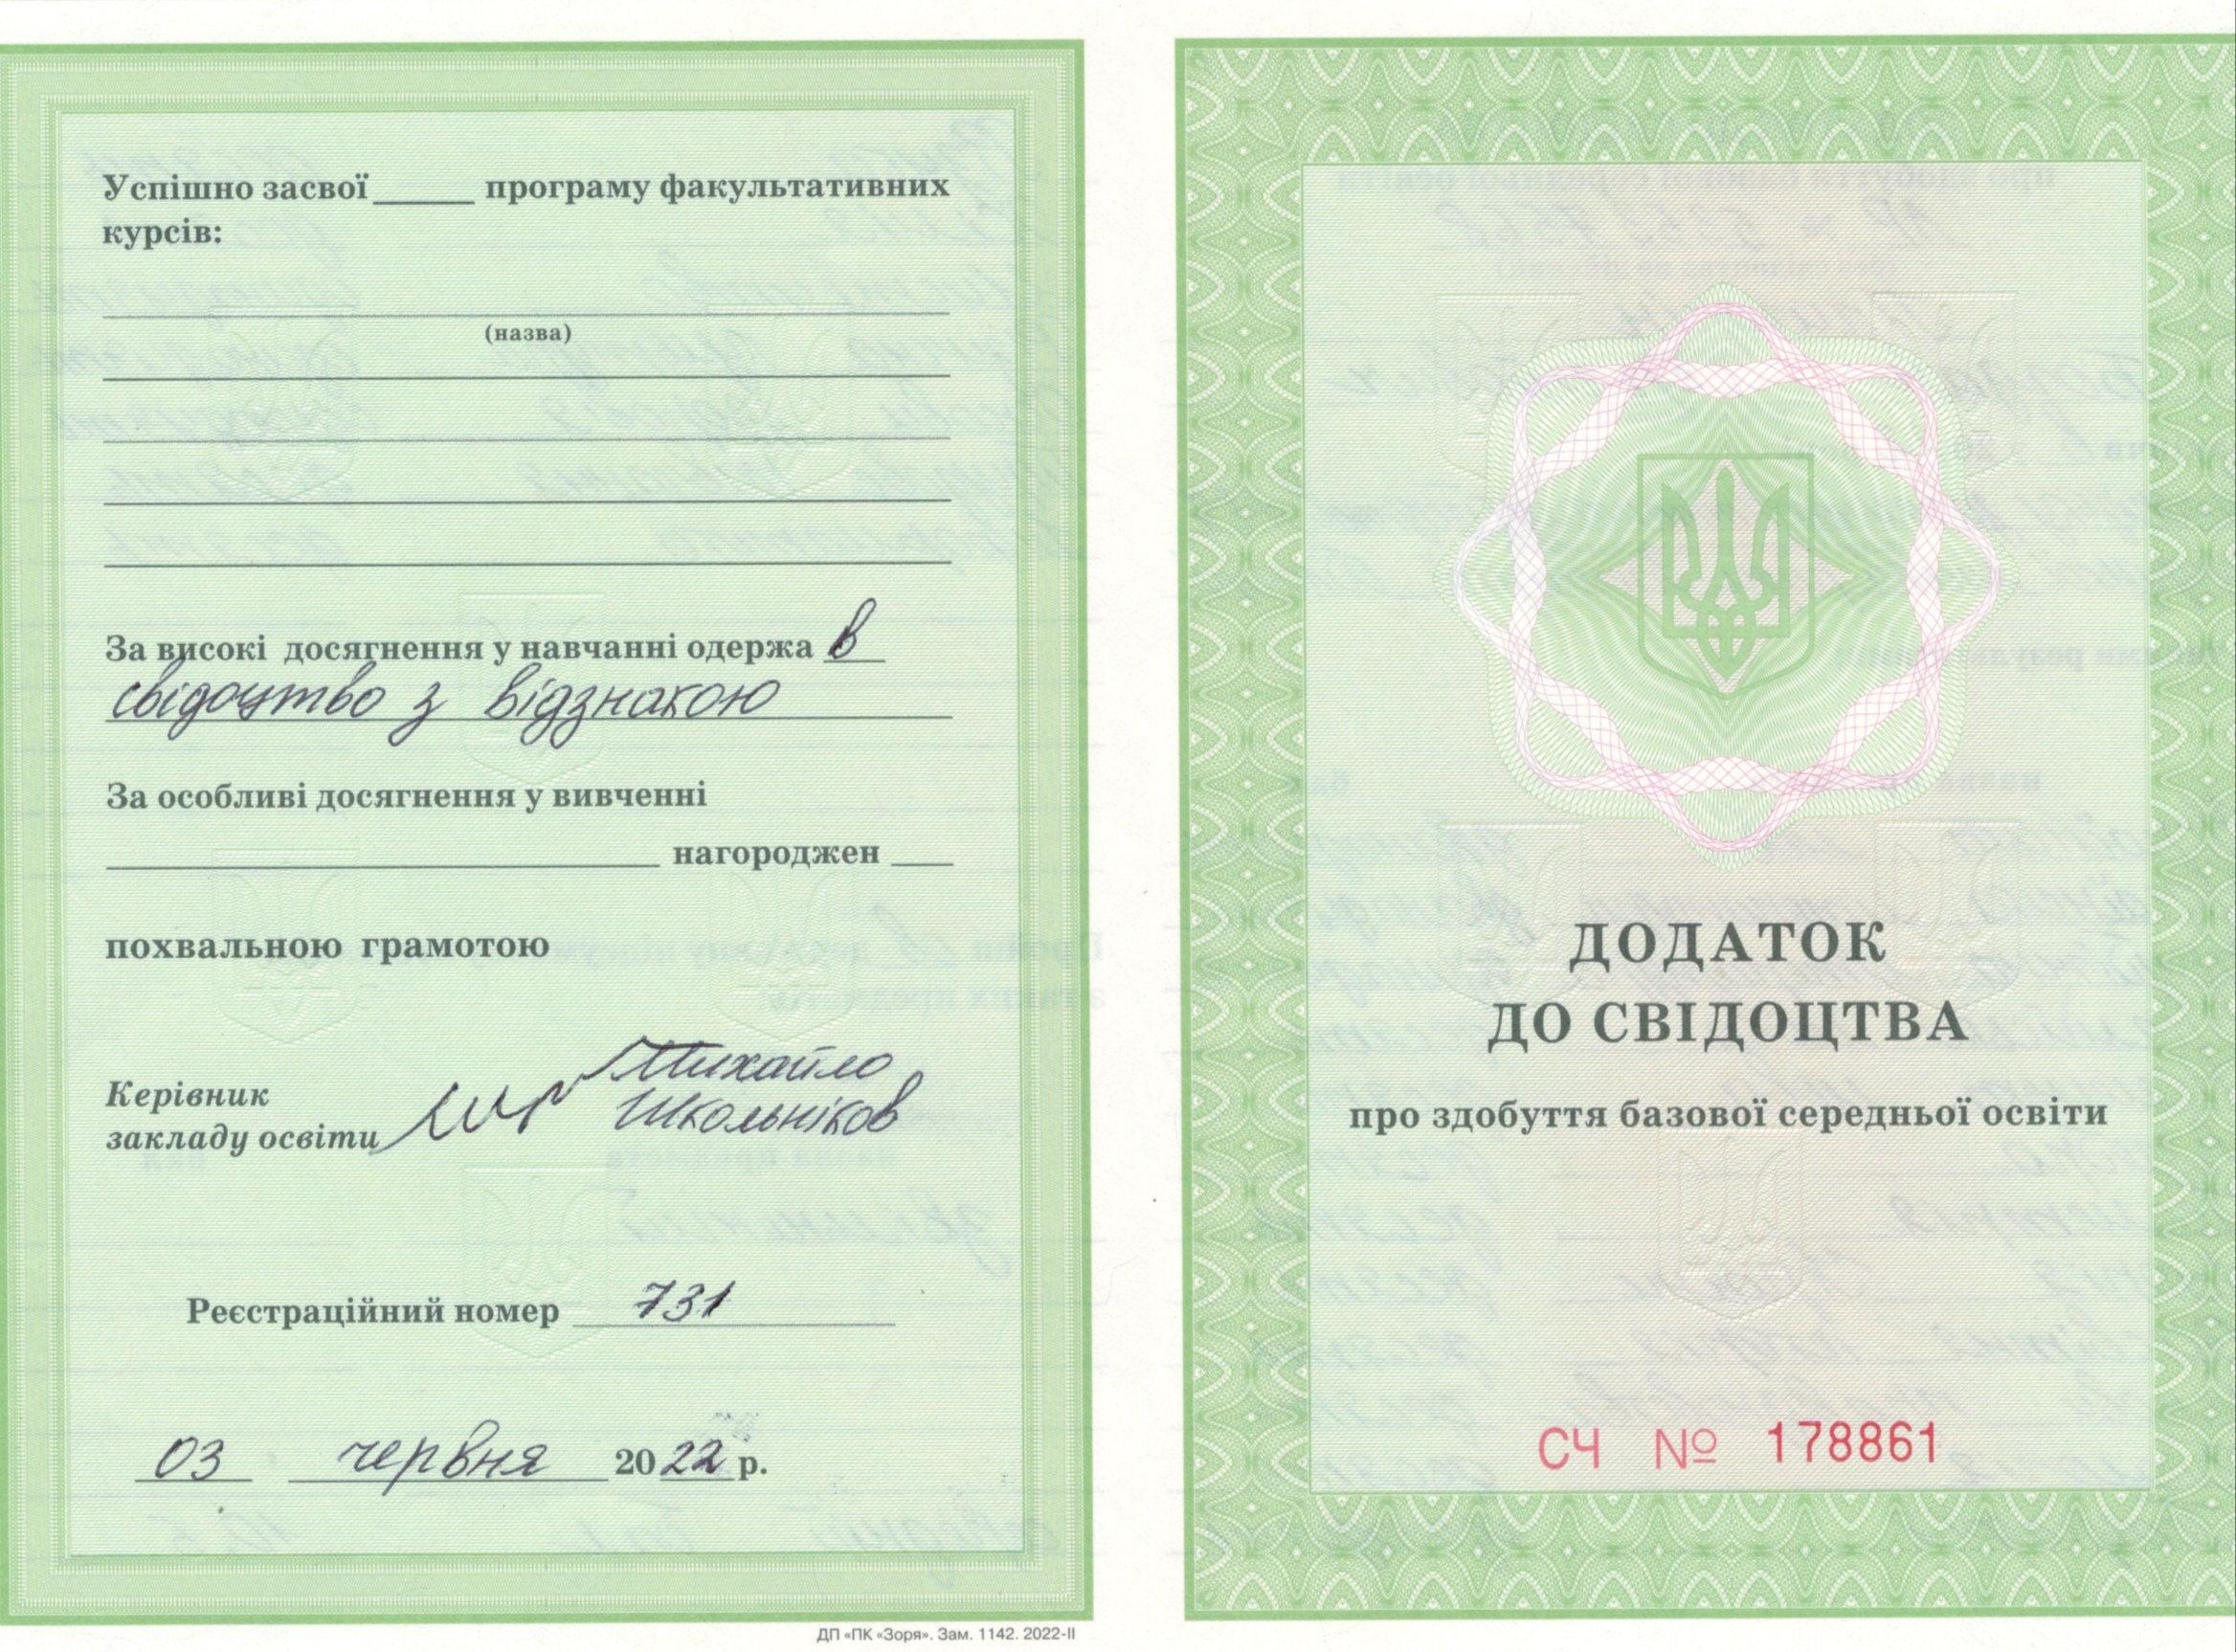 Успішно засвої______ програму факультативних
курсів:
(назва)
За високі досягнення у навчанні одержа в
свідоцтво з відзнакою
За особливі досягнення у вивченні
нагороджен ___
похвальною грамотою
Михайло
Керівник
Школьніков
закладу освіти
Реєстраційний номер 731
03 червня 2022 р.
ДП «ПК «Зоря». Зам. 1142. 2022-ІІ
ДОДАТОК
ДО СВІДОЦТВА
про здобуття базової середньої освіти
СЧ № 178861